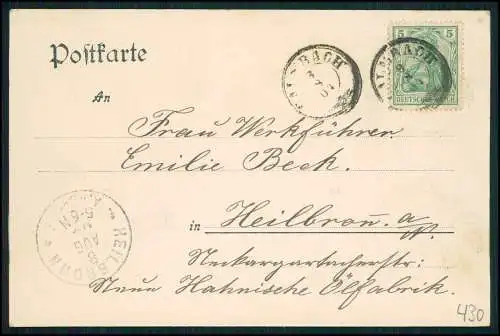 Postkarte
An
Frau Werkführer
Emilie Beck.
in Heilbronn a/N.
Neckargartacherstr:
Neue Hahnische Ölfabrik.
5 5
DEUTSCHES REICH
HEILBRONN
5-6N
AUG
430